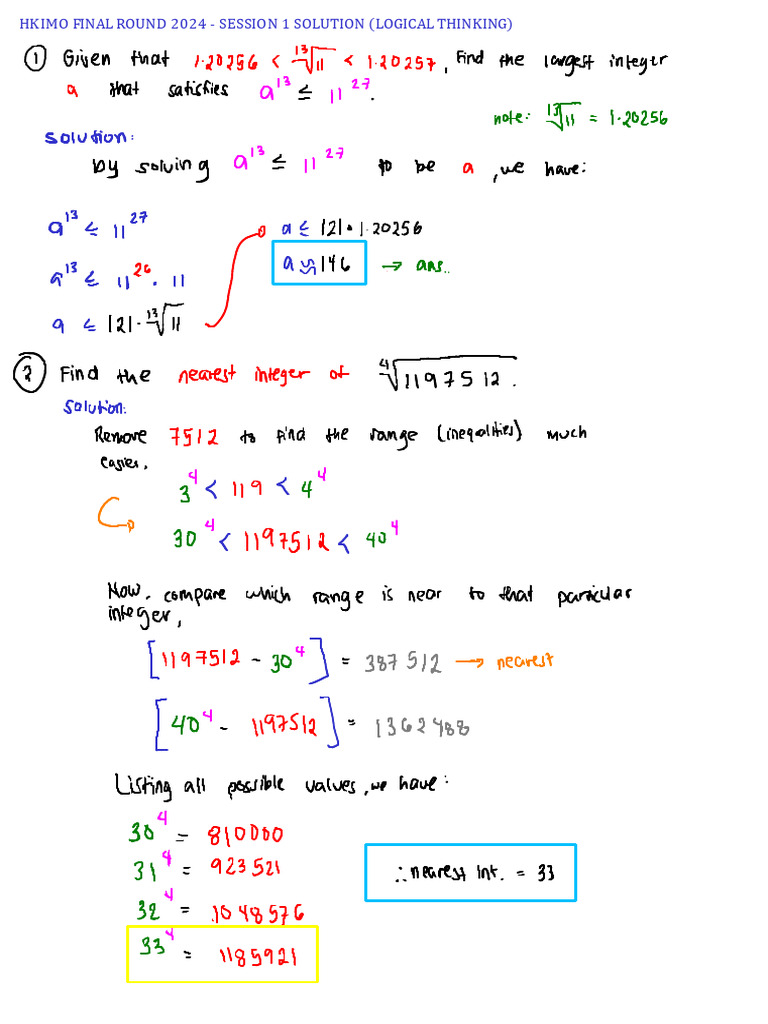 HKIMO FINAL ROUND 2024 - SESSION 1 SOLUTION (LOGICAL THINKING)
① Given that 1.20256 < ¹³√11 < 1.20257, Find the largest integer
a that satisfies a¹³ ≤ 11²⁷.
note: ¹³√11 = 1.20256
solution:
by solving a¹³ ≤ 11²⁷ to be a, we have:
a¹³ ≤ 11²⁷
a ≤ 121 • 1.20256
a¹³ ≤ 11²⁶ • 11
a ≈ 146 → ans..
a ≤ 121 • ¹³√11
② Find the nearest integer of ⁴√1197512.
solution:
Remove 7512 to find the range (inequalities) much
easier.
3⁴ < 119 < 4⁴
30⁴ < 1197512 < 40⁴
Now, compare which range is near to that particular
integer,
[1197512 - 30⁴] = 387512 → nearest
[40⁴ - 1197512] = 1362488
Listing all possible values, we have:
30⁴ = 810000
31⁴ = 923521
∴ nearest int. = 33
32⁴ = 1048576
33⁴ = 1185921